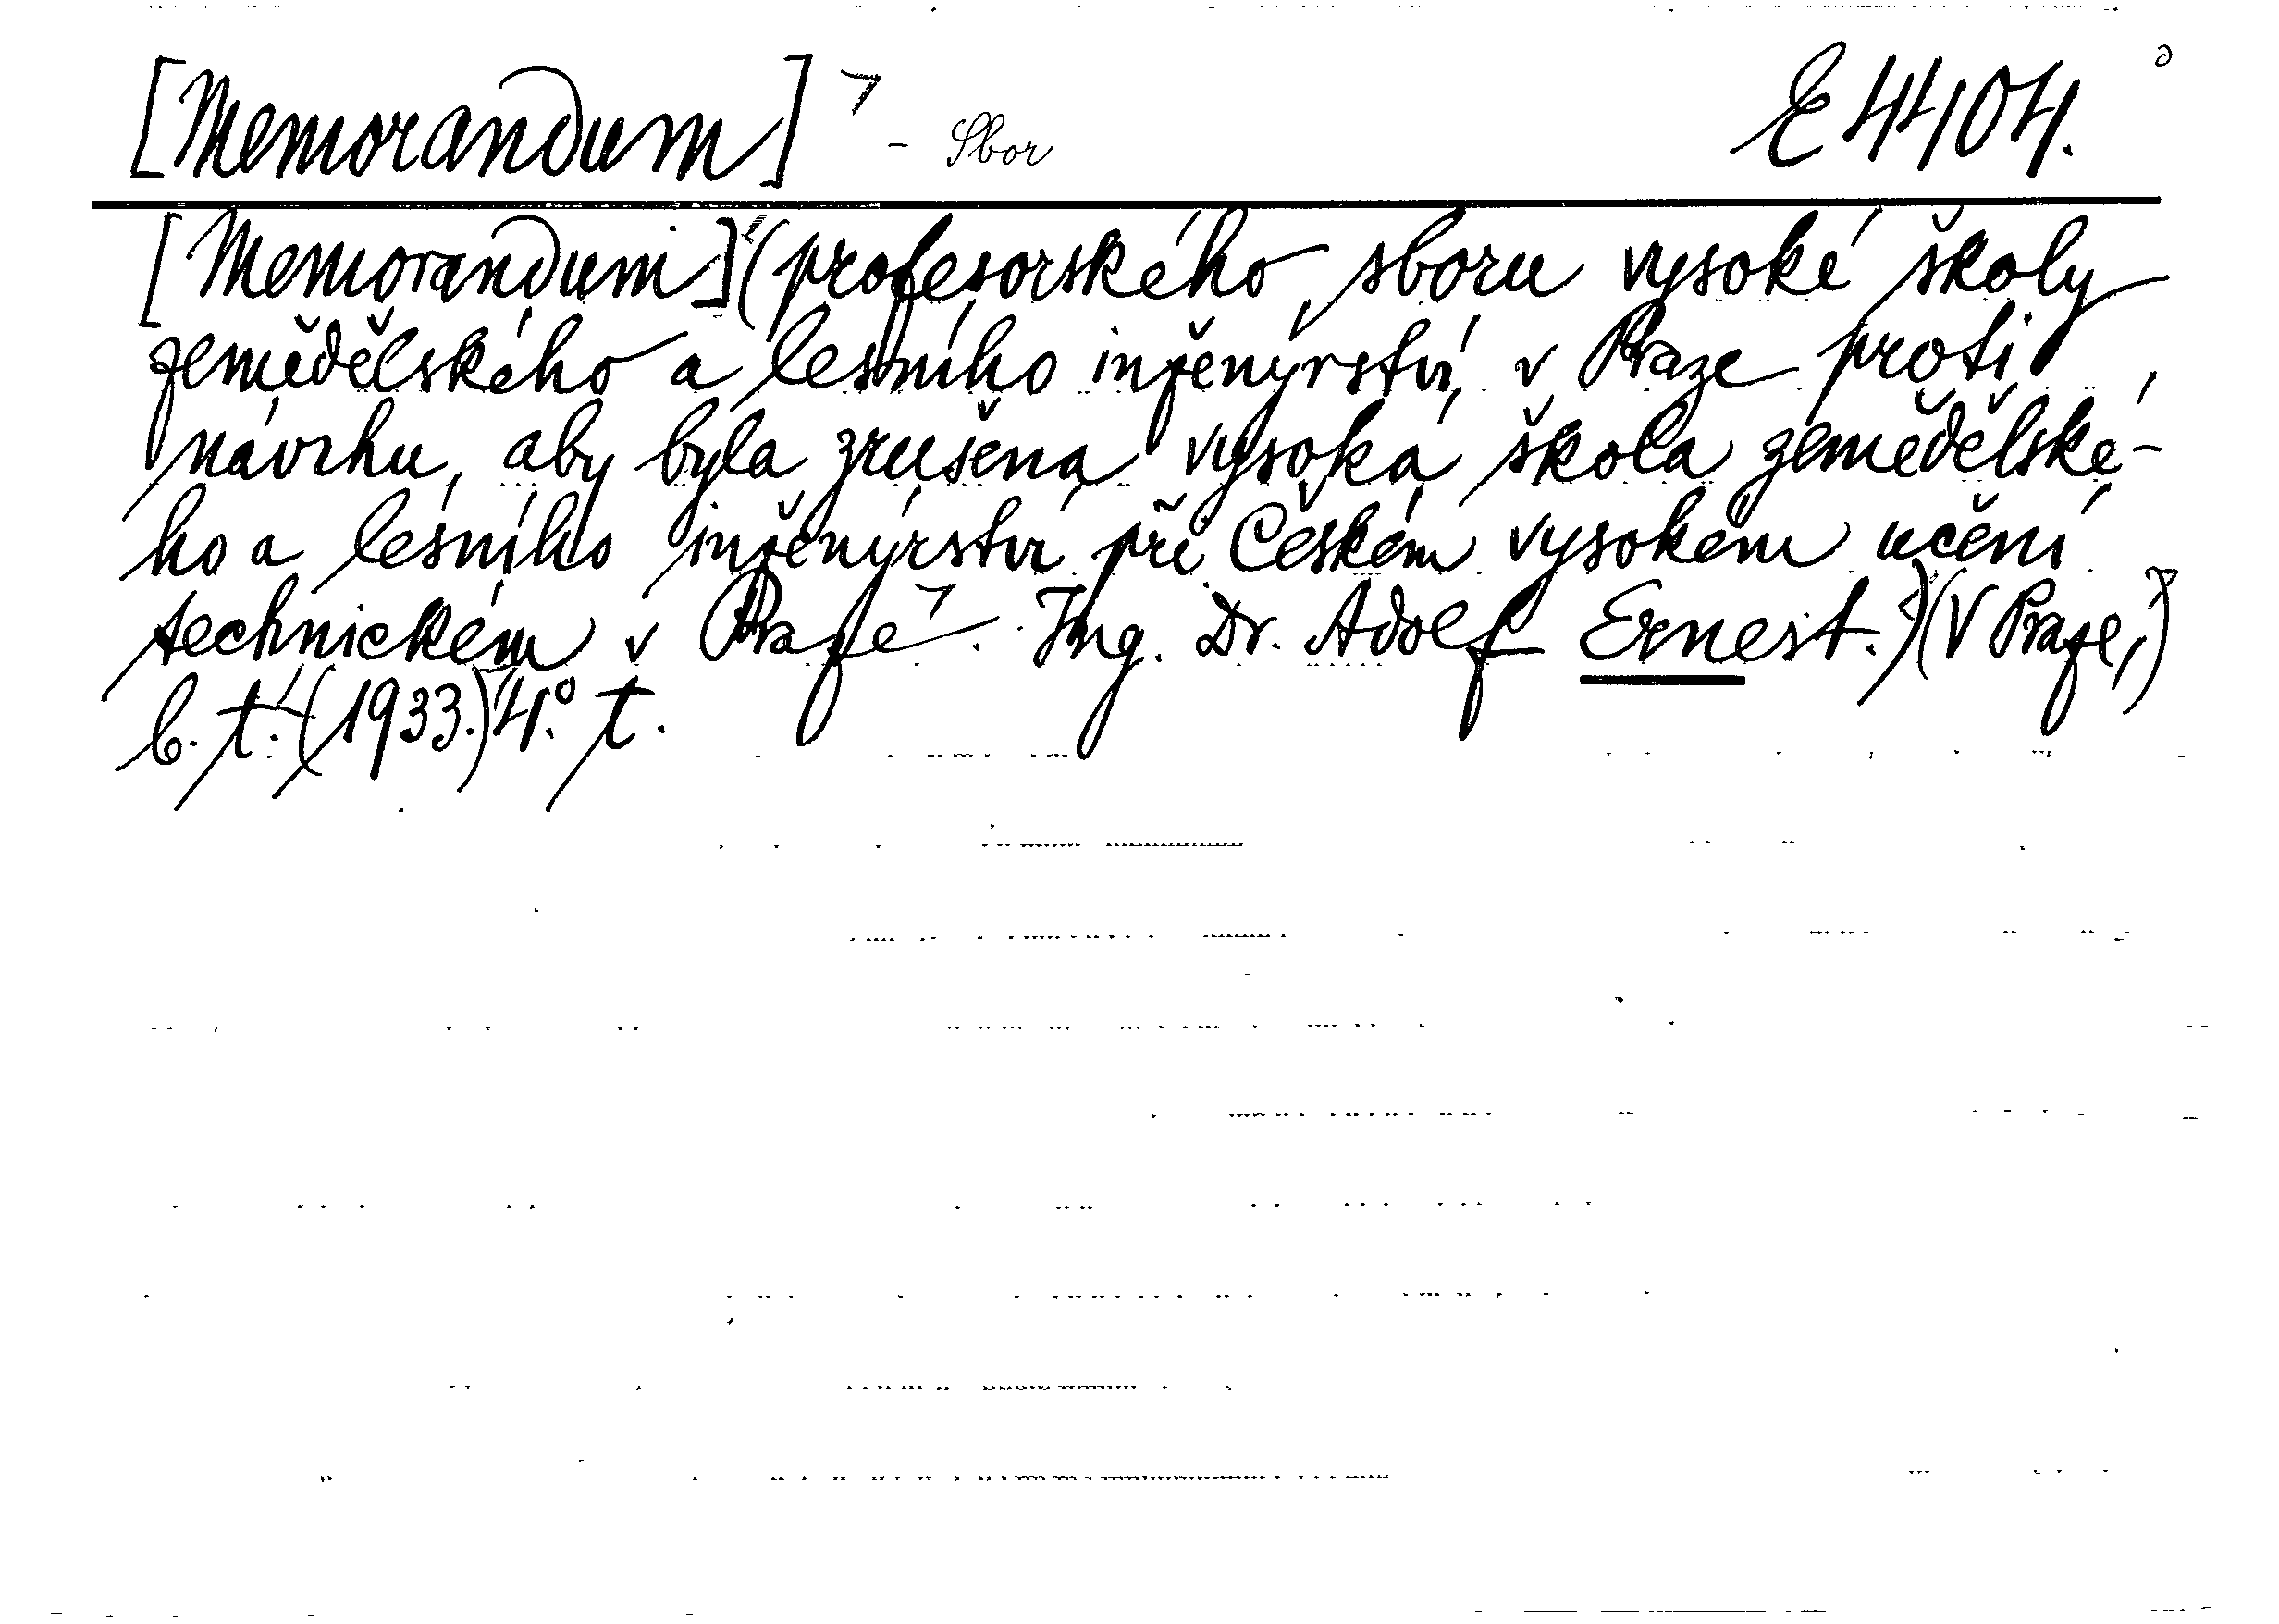 [Memorandum] - Sbor E 4404.
[Memorandum] (profesorského sboru vysoké školy
zemědělského a lesního inženýrství v Praze proti
návrhu, aby byla zrušena vysoká škola zemědělské-
ho a lesního inženýrství při Českém vysokém učení
technickém v Praze. Ing. Dr. Adolf Ernest.) (V Praze,)
b. t. (1933.) 4.° t.